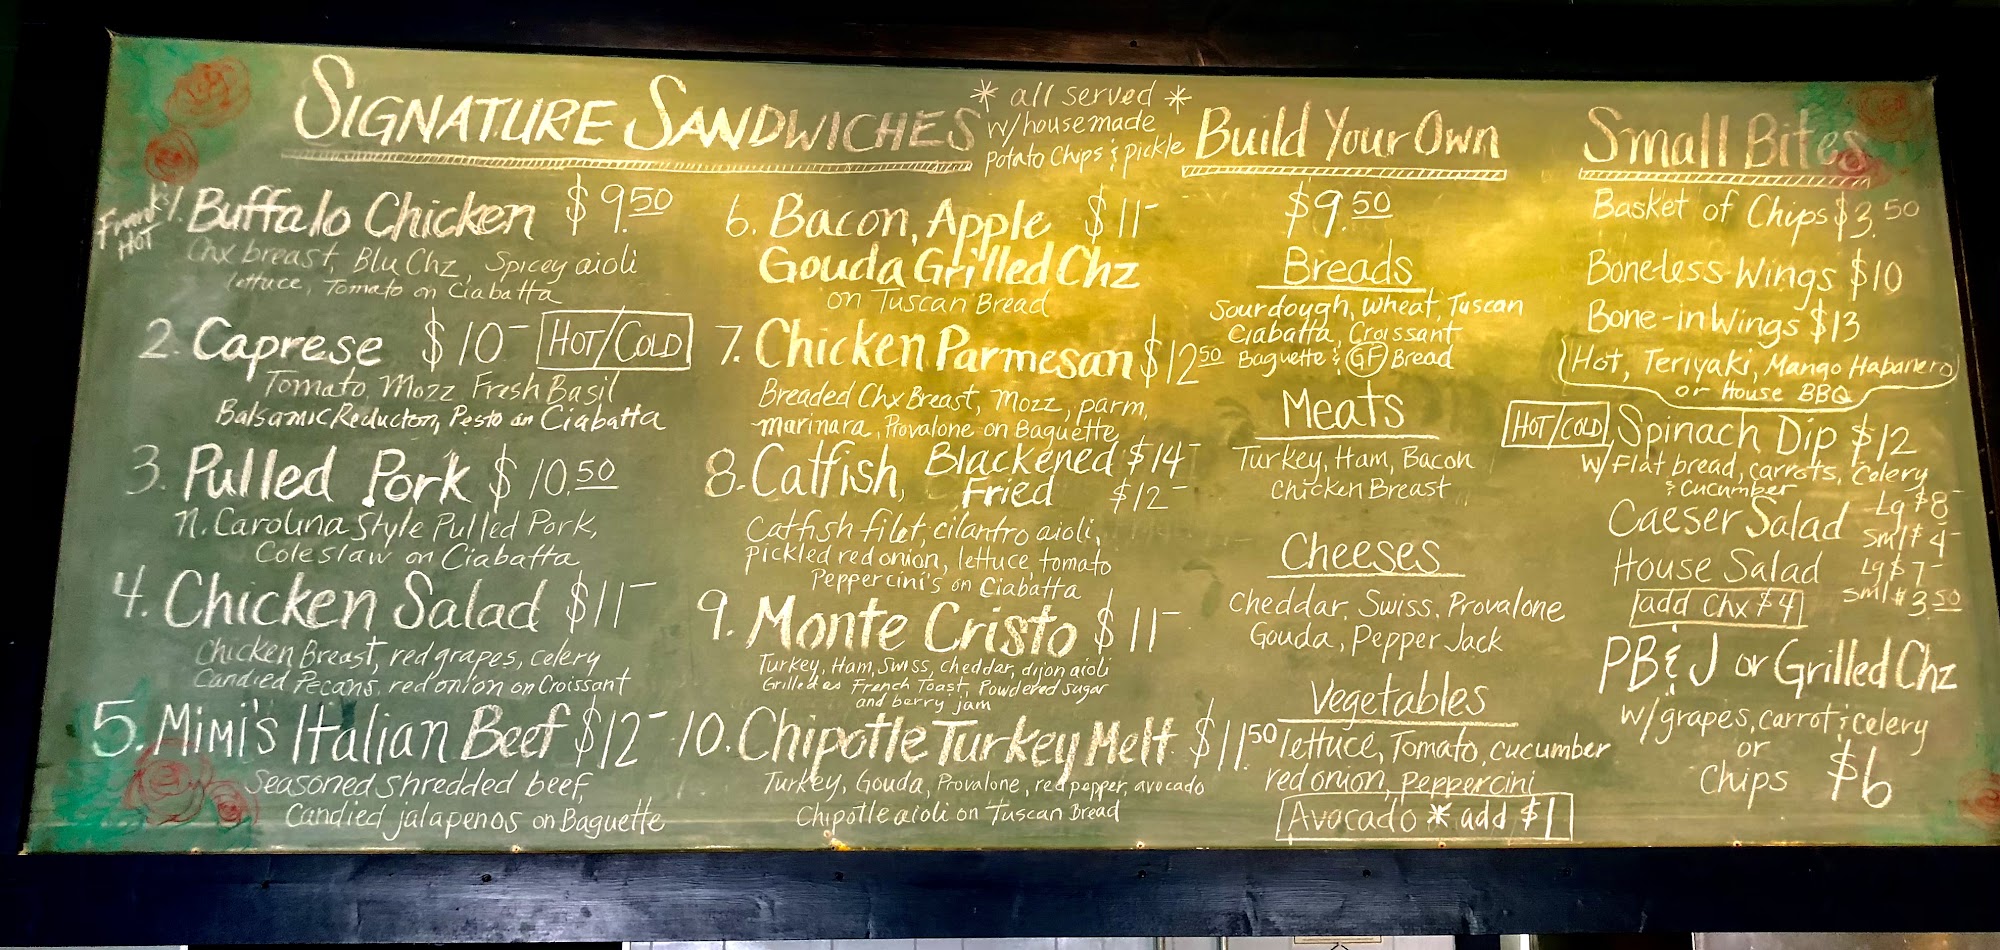 SIGNATURE SANDWICHES
* all served *
w/housemade
potato Chips & pickle
Frank's
HOT
1. Buffalo Chicken $9.50
Chx breast, Blu Chz, Spicey aioli
lettuce, Tomato on Ciabatta
2. Caprese $10- HOT/COLD
Tomato, Mozz, Fresh Basil
Balsamic Reducton, Pesto on Ciabatta
3. Pulled Pork $10.50
N. Carolina Style Pulled Pork,
Coleslaw on Ciabatta
4. Chicken Salad $11-
Chicken Breast, red grapes, celery
Candied Pecans, red onion on Croissant
5. Mimi's Italian Beef $12-
Seasoned shredded beef,
Candied jalapenos on Baguette
6. Bacon, Apple $11-
Gouda Grilled Chz
on Tuscan Bread
7. Chicken Parmesan $12.50
Breaded Chx Breast, Mozz, parm,
marinara, Provalone on Baguette
8. Catfish, Blackened $14-
Fried $12-
Catfish filet, cilantro aioli,
pickled red onion, lettuce, tomato
Peppercini's on Ciabatta
9. Monte Cristo $11-
Turkey, Ham, Swiss, cheddar, dijon aioli
Grilled as French Toast, Powdered sugar
and berry jam
10. Chipotle Turkey Melt $11.50
Turkey, Gouda, Provalone, red pepper, avocado
Chipotle aioli on Tuscan Bread
Build Your Own
$9.50
Breads
Sourdough, Wheat, Tuscan
Ciabatta, Croissant
Baguette & GF Bread
Meats
Turkey, Ham, Bacon
Chicken Breast
Cheeses
Cheddar, Swiss, Provalone
Gouda, Pepper Jack
Vegetables
lettuce, Tomato, cucumber
red onion, peppercini
Avocado * add $1
Small Bites
Basket of Chips $3.50
Boneless Wings $10
Bone-in Wings $13
(Hot, Teriyaki, Mango Habanero)
or House BBQ
HOT/COLD Spinach Dip $12
w/ Flat bread, carrots, Celery
& cucumber
Caeser Salad Lg $8-
sml $4-
House Salad Lg $7-
sml $3.50
add Chx $4
PB&J or Grilled Chz
w/grapes, carrot & celery
or
Chips $6